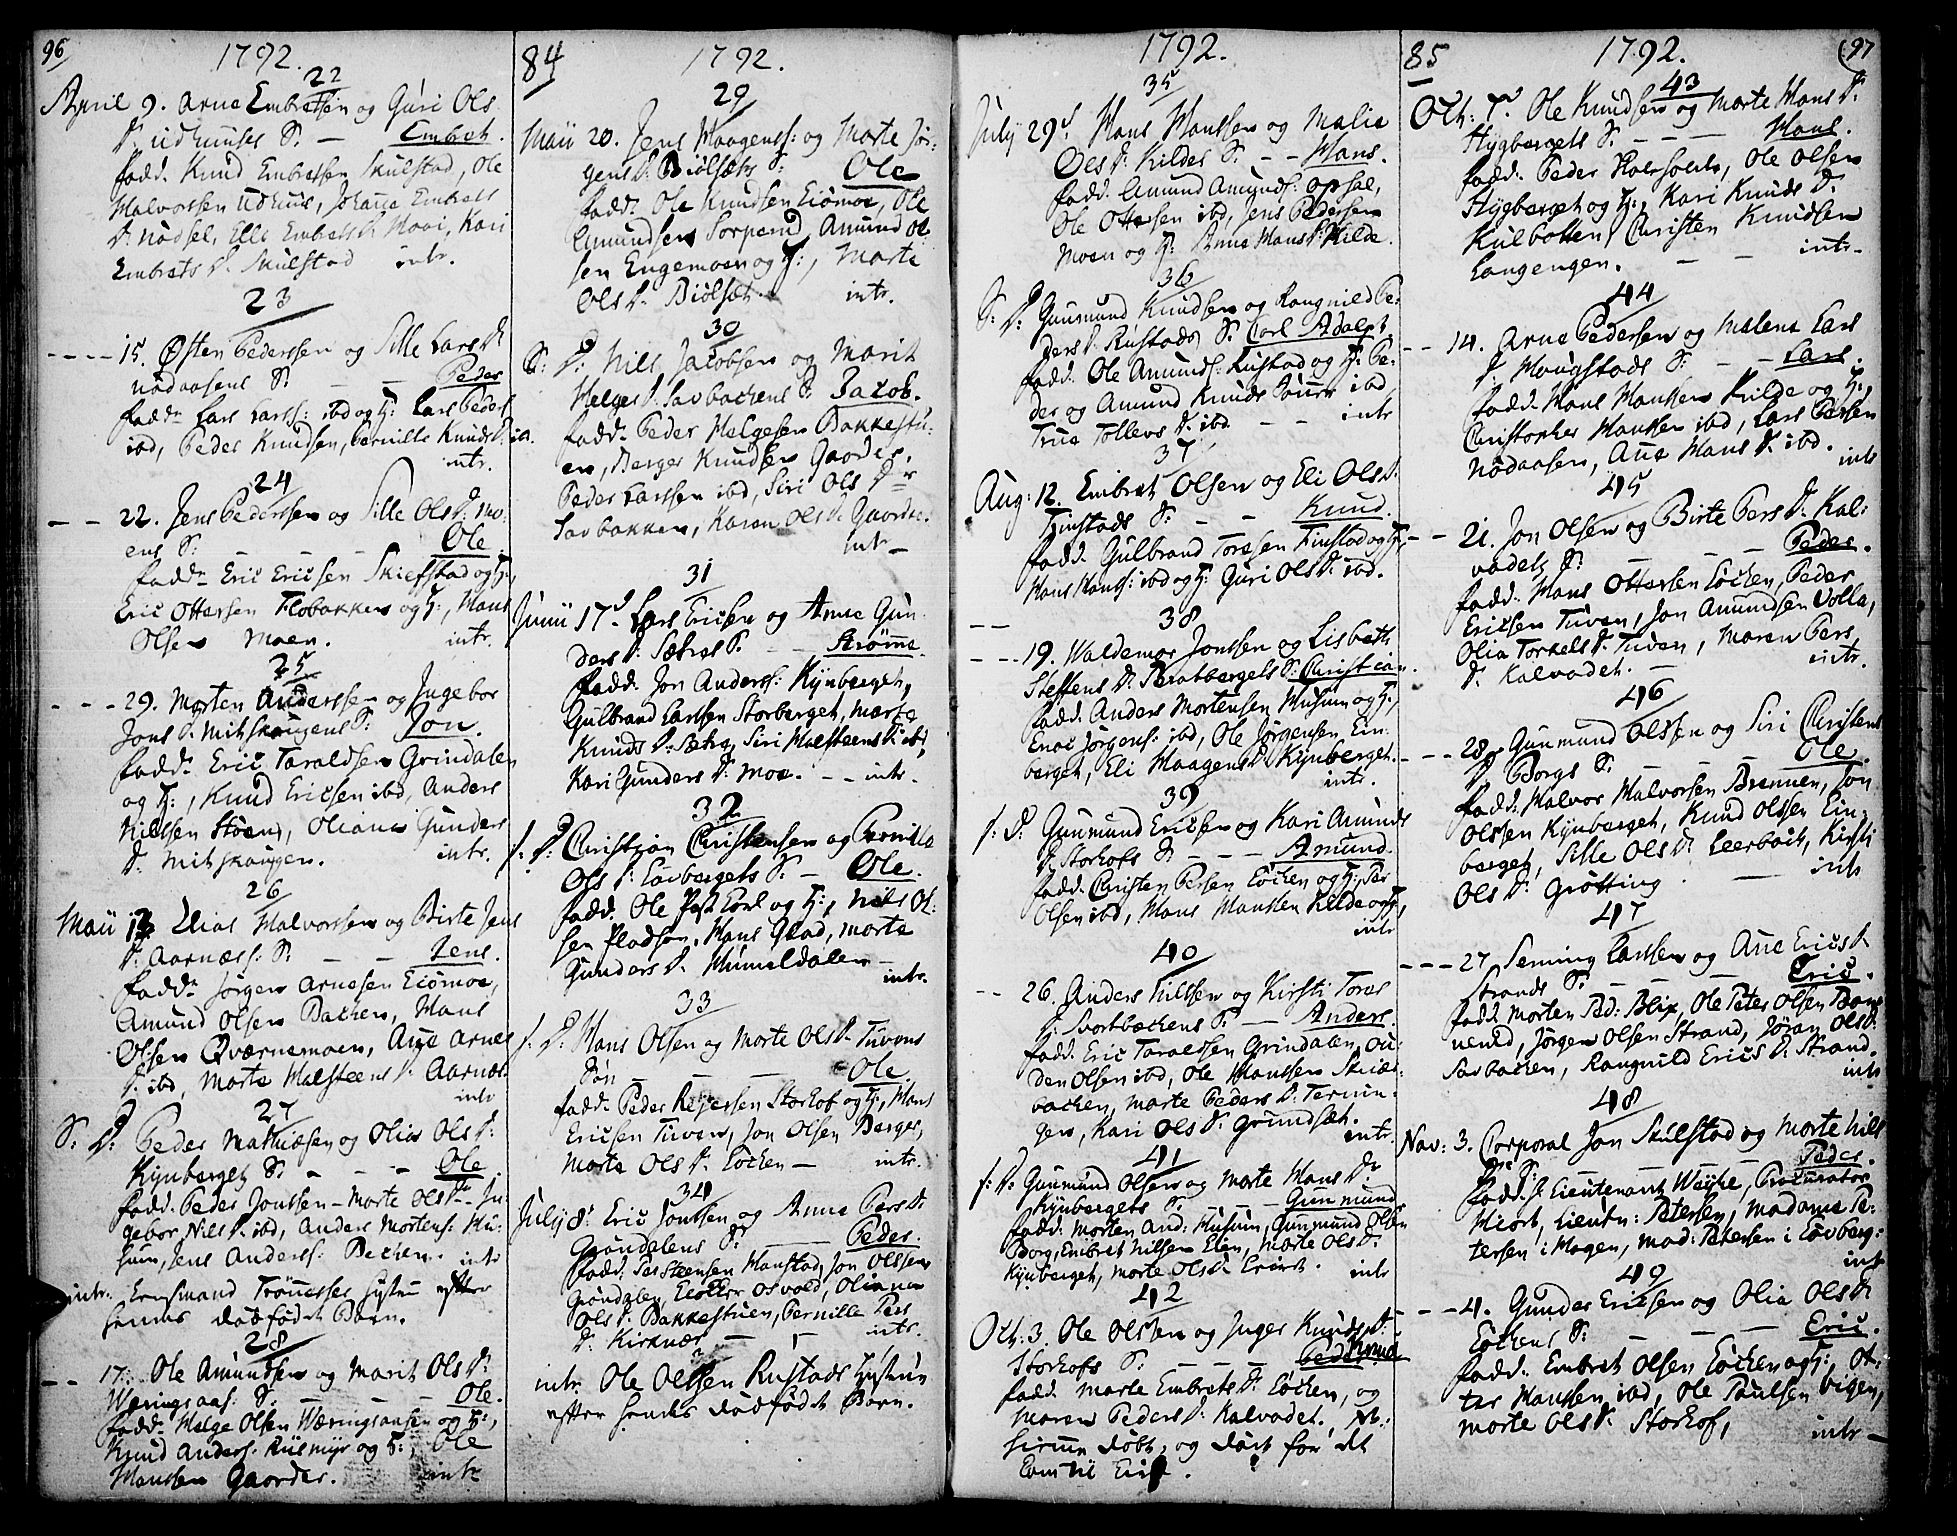 96
1792.
22
April 9. Arne Embretsen og Guri Ols
D. Udhuuses S. — Embret.
fadd. Knud Embretsen Skulstad, Ole
Halvorsen Udhuus, Johana Embrets
D. Nødsel, Elle Embrets D. Moai, Kari
Embrets D. Skulstad intr.
23
15. Østen Pedersen og Sille Lars D.
Nødaasens S. — — Peder
fadd. Lars Larss: ibd og H: Lars Peders
ibd, Peder Knudsen, Pernille Knuds D. ia.
intr.
24
22. Jens Pedersen og Sille Ols D. Mo-
ens S: — — Ole
fadd. Eric Ericsen Skiefstad og H:,
Eric Ottersen Flobakken og H:, Hans
Olsen Moen. intr.
25
29. Morten Anderssen og Ingebor
Jons D. Mitskougens S: Jon.
fadd. Eric Taraldsen Grindalen
og H:, Knud Ericsen ibd, Anders
Nilssen Støen, Oliana Gunders
D. Mitskougen. intr.
26
Maii 13 Elias Halvorsen og Birte Jens
D. Aarnæss: S: — — Jens.
fadd. Jørgen Arnesen Eiomoe,
Amund Olsen Backen, Hans
Olsen Qværnemoen, Ane Arnes
D. ibd, Morte Halsteens D. Aarnæs.
intr
27
S: D: Peder Mathiæsen og Olia Ols D:
Kynberget S: — — Ole
fadd. Peder Jonssen — Morte Ols D. In-
gebor Nils D. ibd, Anders Mortens: Hu-
sum, Jens Anderss: Becken. intr
intr. Ensmand Trønesses Hustru efter
hendes dødfødt Barn.
28
17. Ole Amundsen og Marit Ols D:
Wæringsaas: S. — — — Ole.
fadd. Helge Olsen Wæringsaasen og H:,
Knud Anders: Riismyr og H:, Ole
Hanssen Gaarder. intr
84
1792.
29
Maii 20. Jens Haagenss: og Morte Jør-
gens D. Biølsæts S: Ole
fadd. Ole Knudsen Eiomoe, Ole
Amundsen Sorperud, Amund Ol-
sen Engemoen og H:, Morte
Ols D. Biølsæt. intr.
30
S: D: Nils Jacobsen og Marit
Helges D. Savbackens S. Jacob.
fadd. Peder Helgesen Backestu-
en, Berger Knudsen Gaarder,
Peder Larssen ibd, Siri Ols D.
Savbakken, Karen Ols D. Gaarder.
intr —
31
Junii 17. Lars Ericsen og Anne Gun-
ders D. Sætres D. — Strømme
fadd. Jon Anderss: Kynberget,
Gulbrand Larssen Storberget, Morte
Knuds D. Sætre, Siri Halsteens D. ibd,
Kari Gunders D. Moe. — — intr.
32
S: D: Christian Christensen og Pernille
Ols D. Lovbergets S. — Ole.
fadd. Ole Post Carl og H:, Nils Ol-
sen Pladsen, Hans Glad, Morte
Gunders D. Hummeldalen — intr.
33
S: D: Hans Olsen og Morte Ols D. Tuvens
Søn — — — Ole
fadd. Peder Reiersen Storhof og H:, Hans
Ericsen Tuven, Jon Olsen Berger,
Morte Ols D. Løcken — intr.
34
July 8. Eric Jonssen og Anne Pers D.
Grøndalens S. — — Peder.
fadd. Per Steensen Hanstad, Jon Olssen
Grøndalen, Osvold, Oliana
Ols D. Bakkestuen, Pernille Pers
D. Kirknær — — intr.
intr. Ole Olssen Rustads Hustru
efter hendes dødfødt Barn.
1792.
35
July 29. Hans Hanssen og Malie
Oles D. Kildes S. — — Hans.
fadd. Amund Amunds: Opsal,
Ole Ottersen ibd, Jens Pedersen
Moen og H: Anne Hans D. Kilde.
36
S: D: Gunmund Knudsen og Rangnild Pe-
ders D. Rustads S. Carl Adolph
fadd. Ole Amunds: Rustad og H: Pe-
der og Amund Knuds Sønner ibd,
Trua Tollevs D. ibd. — — intr
37
Aug: 12. Embret Olsen og Eli Ols D.
Finstads S. — — Knud.
fadd. Gulbrand Toresen Finstad og H:,
Hans Hans: ibd og H: Guri Ols D. ibd.
38
19. Waldemar Jonssen og Lisbeth
Steffens D. Skratbergets S. Christian.
fadd. Anders Mortensen Husum og H:,
Enoc Jørgens: ibd, Ole Jørgensen Ein-
berget, Eli Haagens D. Kynberget.
intr.
39
S: D: Gunmund Ericsen og Kari Amunds
D. Storhofs S. — — — Amund.
fadd. Christen Persen Løcken og H: Per
Olsen ibd, Hans Hanssen Kilde og H:,
intr
40
26. Anders Nilssen og Kirsti Tores
D. Svortbackens S. — Anders.
fadd. Eric Taraldsen Grindalen, Ou-
den Olsen ibd, Ole Hanssen Skiær-
backen, Morte Peders D. Ternin-
gen, Kari Ols D. Grundsæt. intr
41
S: D: Gunmund Olsen og Morte Hans D.
Kynbergets S. — — Gunmund
fadd. Morten And: Husum, Gunmund Olsen
Borg, Embret Nilsen Elen, Morte Ols D.
Kynberget, Morte Ols D. intr
42
Oct: 3. Ole Olssen og Inger Knuds D:
Storhofs S. — — — Peder Knud
fadd. Morte Embrets D. Løcken, og
Maren Peders D. Kalvadet.
hiemme døbt, og død før det
kom til
85
1792.
97
43
Oct: 7. Ole Knudsen og Morte Hans D.
Hygbergets S. — — — Hans.
fadd. Peder Halvsolds, Ole Olsen
Hygberget og H:, Kari Knuds D.
Kulbotten, Christen Knudsen
Langengen. — — intr.
44
14. Arne Pedersen og Malena Lars
D. Mougstads S. — — Lars.
fadd. Hans Hanssen Kilde og H:,
Christopher Hanssen ibd, Lars Larssen
Nødaasen, Ane Hans D. ibd. intr
45
21. Jon Olsen og Birte Pers D. Kal-
vadets S. — — — Peder.
fadd. Hans Ottersen Løcken, Peder
Ericsen Tuven, Jon Amundsen Volla,
Olia Torkels D. Tuven, Maren Pers
D. Kalvadet. — intr.
46
28. Gunmund Olssen og Siri Christens
D. Borgs S. — — — Ole
fadd. Halvor Halvorsen Brennen, Jon
Olssen Kynberget, Knud Olssen Ein-
berget, Sille Ols D. Leerbæck, Kirsti
Ols D. Grøtting. — intr
47
27. Seming Larssen og Ane Erics D.
Strands S. — — — Eric.
fadd. Morten Ped: Blix, Ole Peter Olsen
Jørgen Olsen Strand, Jøran Ols D.
Savbacken, Rangnild Erics D. Strand.
intr
48
Nov: 3. Corporal Jon Skulstad og Morte Nils
D. S. Peder.
fadd. S. Lieutenant Weyhe, Procurator
Hiort, Lieutn: Petersen, Madame Pe-
tersen i Hagen, Mad: Petersen i Løvberg:
intr
49
4. Gunder Ericsen og Olia Ols D.
Løckens S. — — — Eric.
fadd. Embret Olsen Løcken og H:, Ot-
ter Hanssen ibd, Ole Paulsen Vigen,
Morte Ols D. Storhof, intr —